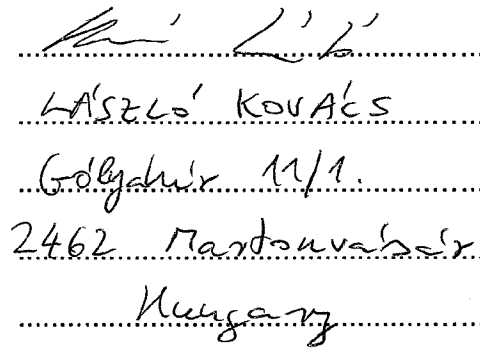 LÁSZLÓ KOVÁCS
Gólyahír 11/1.
2462 Martonvásár
Hungary